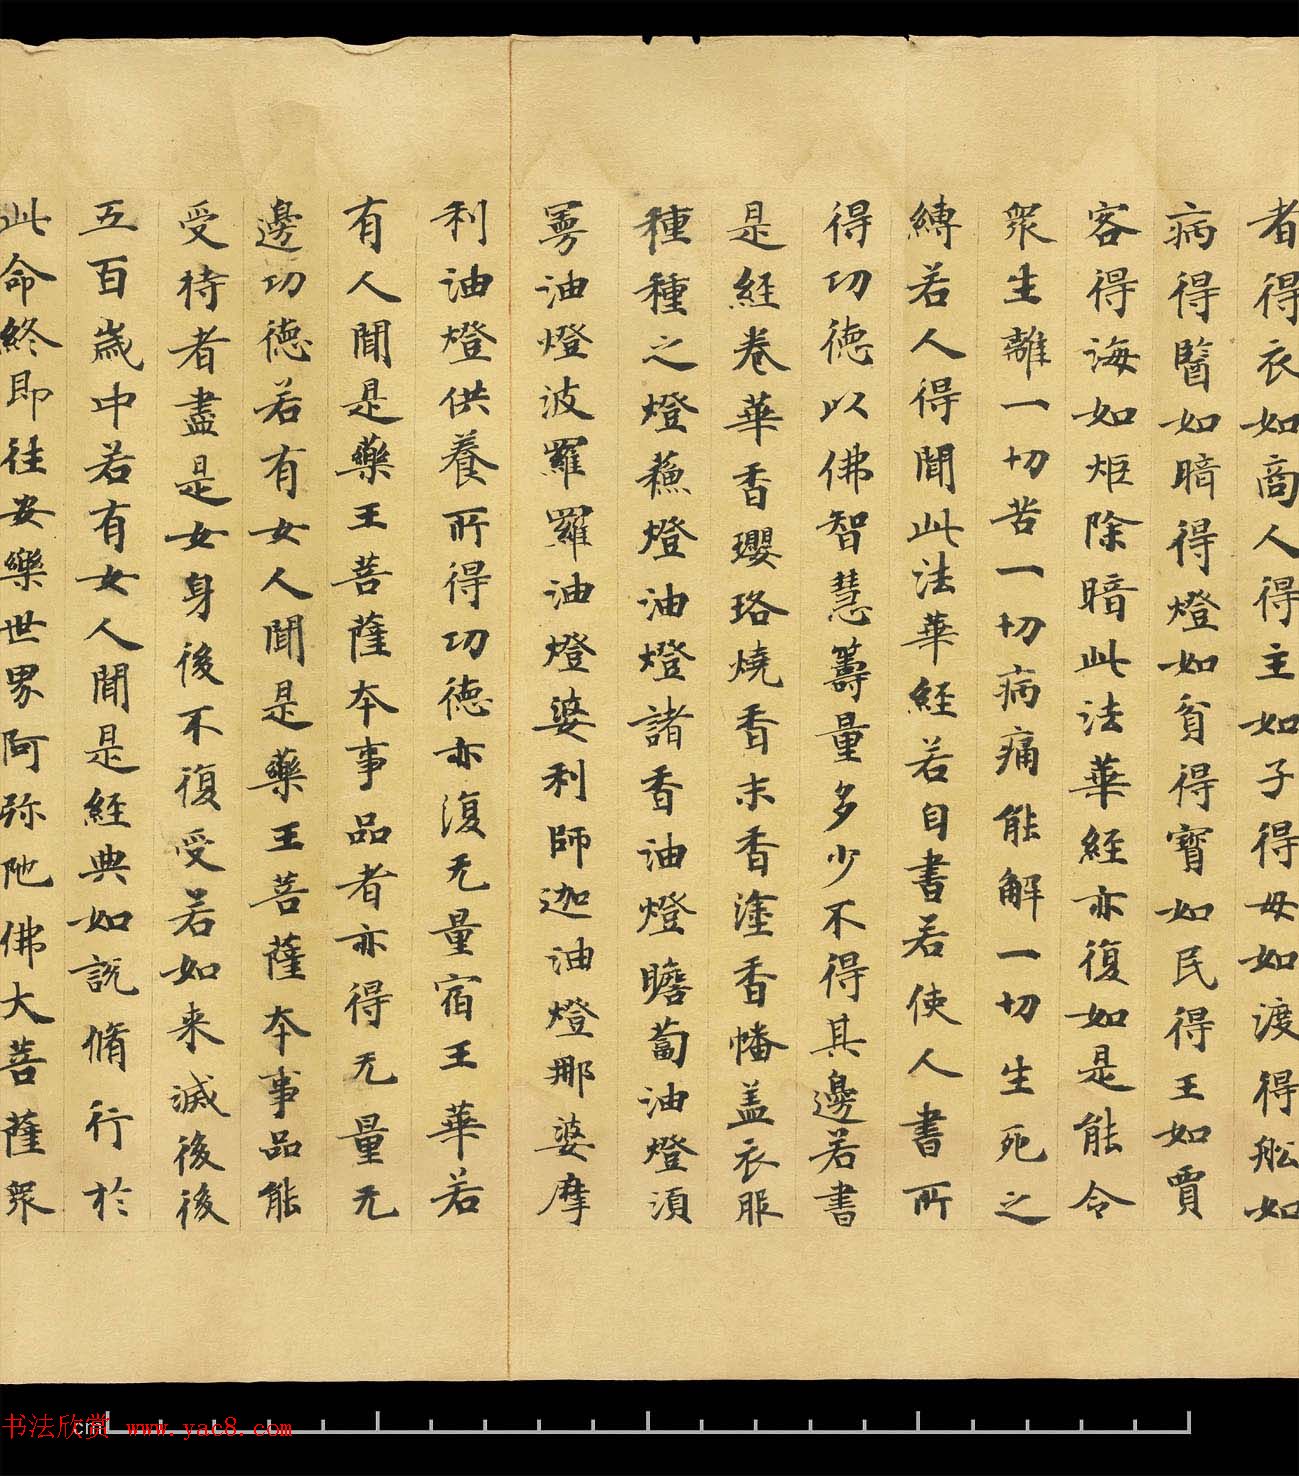 者得衣如商人得主如子得母如渡得舩如
病得醫如暗得燈如貧得寶如民得王如賈
客得海如炬除暗此法華經亦復如是能令
衆生離一切苦一切病痛能解一切生死之
縛若人得聞此法華經若自書若使人書所
得功德以佛智慧籌量多少不得其邊若書
是經卷華香瓔珞燒香末香塗香幡盖衣服
種種之燈蘓燈油燈諸香油燈瞻蔔油燈須
曼油燈波羅羅油燈婆利師迦油燈那婆摩
利油燈供養所得功德亦復无量宿王華若
有人聞是藥王菩薩本事品者亦得无量无
邊功德若有女人聞是藥王菩薩本事品能
受持者盡是女身後不復受若如来滅後後
五百歲中若有女人聞是經典如說脩行於
此命終即往安樂世界阿弥陁佛大菩薩衆
cm
书法欣赏 www.yac8.com